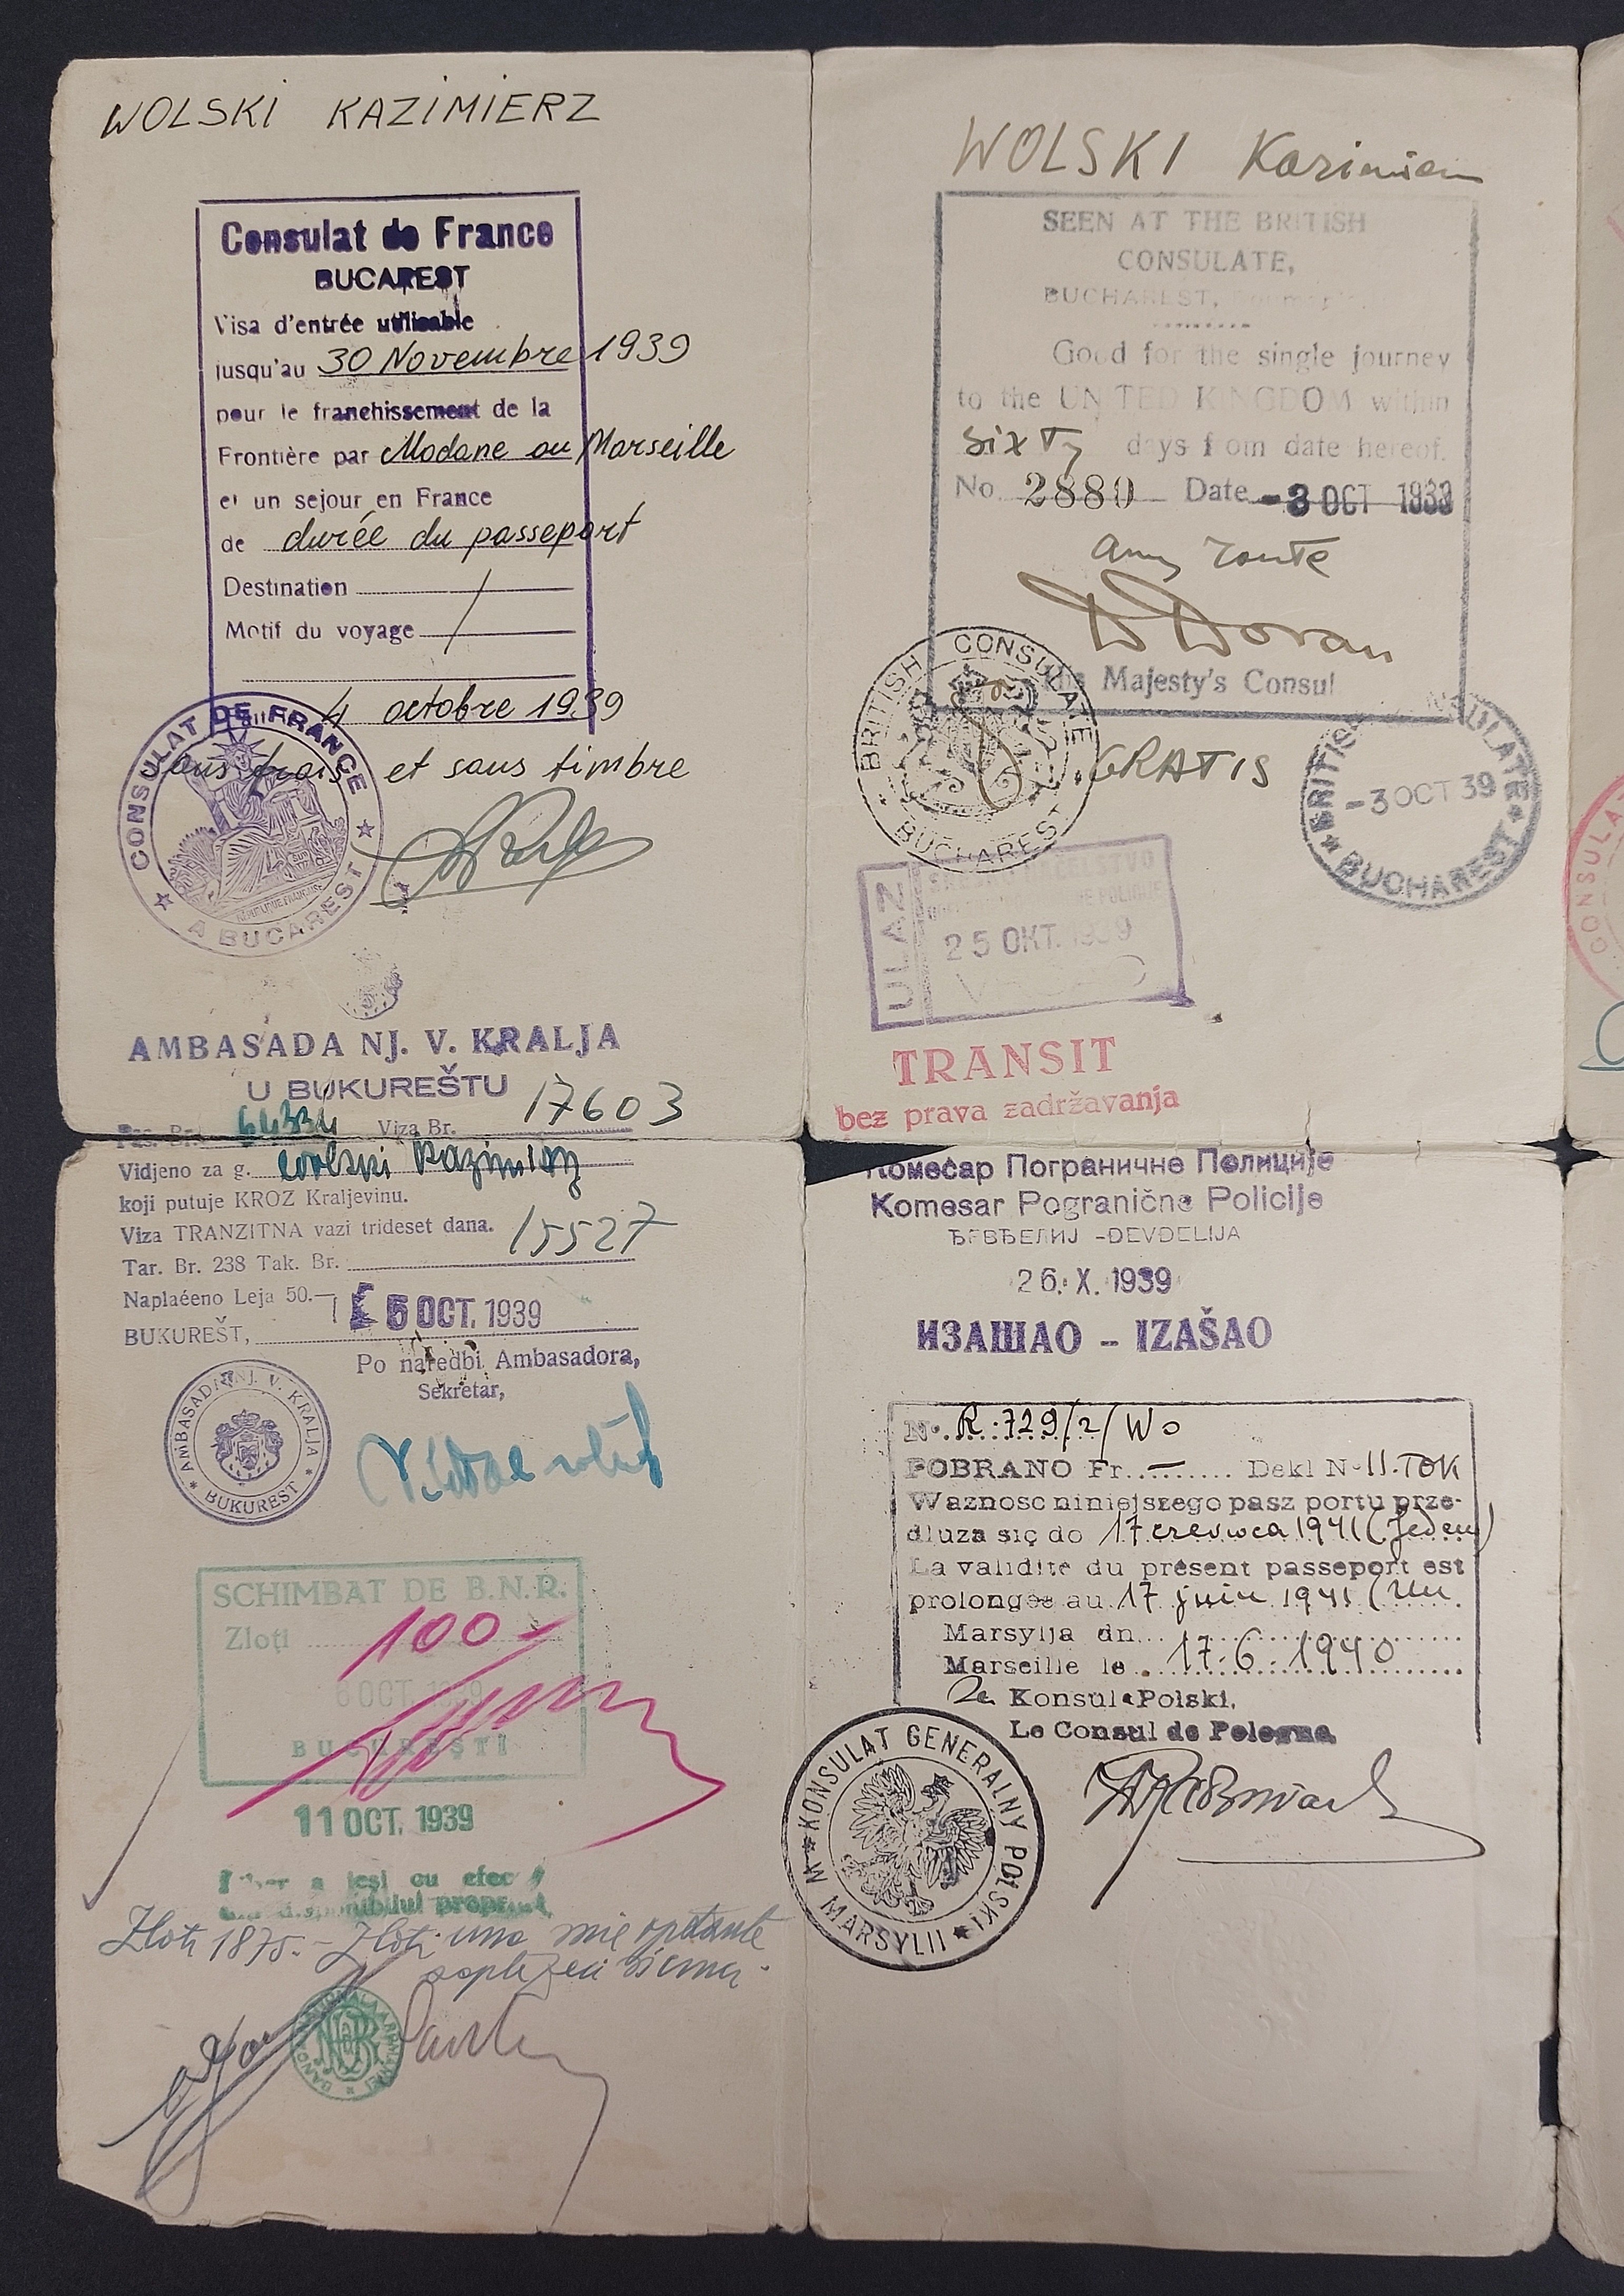 WOLSKI KAZIMIERZ
Consulat de France
BUCAREST
Visa d'entrée utilisable
jusqu'au 30 Novembre 1939
pour le franchissement de la
Frontière par Modane ou Marseille
et un sejour en France
de durée du passeport
Destination
Motif du voyage
4 octobre 1939
sans frais et sans timbre
CONSULAT DE FRANCE
A BUCAREST
AMBASADA NJ. V. KRALJA
U BUKUREŠTU
Pas. Br. 64334 Viza Br. 17603
Vidjeno za g. Wolski Kazimierz
koji putuje KROZ Kraljevinu.
Viza TRANZITNA vazi trideset dana.
Tar. Br. 238 Tak. Br. 15527
Naplaéeno Leja 50.—
BUKUREŠT, 5 OCT. 1939
Po naredbi Ambasadora,
Sekretar,
AMBASADA NJ. V. KRALJA
BUKUREST
SCHIMBAT DE B.N.R.
Zloţi 100
6 OCT. 1939
BUCUREŞTI
11 OCT. 1939
a ieşi cu efec
disponibilul propriu
Zloti 1875.- Zloti una mie optsute
BANCA NATIONALA A ROMANIEI
BNR
WOLSKI Kazimierz
SEEN AT THE BRITISH
CONSULATE,
BUCHAREST, Roumania.
Good for the single journey
to the UNITED KINGDOM within
sixty days from date hereof.
No 2880 Date -3 OCT 1939
any route
D Doran
His Majesty's Consul
BRITISH CONSULATE
BUCHAREST
GRATIS
BRITISH CONSULATE
-3 OCT 39
BUCHAREST
ULAZ
25 OKT. 1939
TRANSIT
bez prava zadržavanja
Комесар Пограничне Полиције
Komesar Pogranične Policije
ЂЕВЂЕЛИЈ -ĐEVĐELIJA
26. X. 1939
ИЗАШАО – IZAŠAO
No. R.:729/2/Wo
POBRANO Fr. — Dekl N- II. TOK
Waznosc niniejszego pasz portu prze-
dluza się do 17 czerwca 1941 (jeden)
La validite du présent passeport est
prolongee au 17 juin 1941 (un
Marsylja dn.
Marseille le 17-6-1940
Za Konsul Polski.
Le Consul de Pologne
KONSULAT GENERALNY POLSKI
W MARSYLII
CONSULA